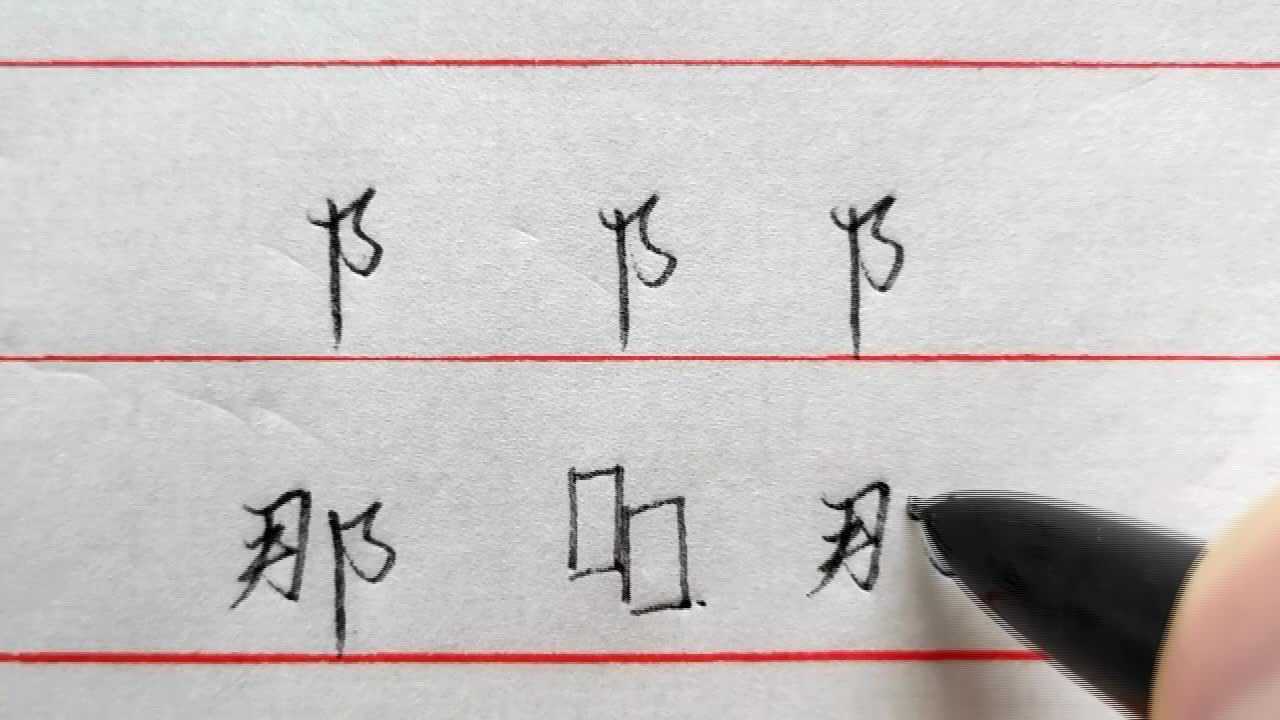 阝 阝 阝
那